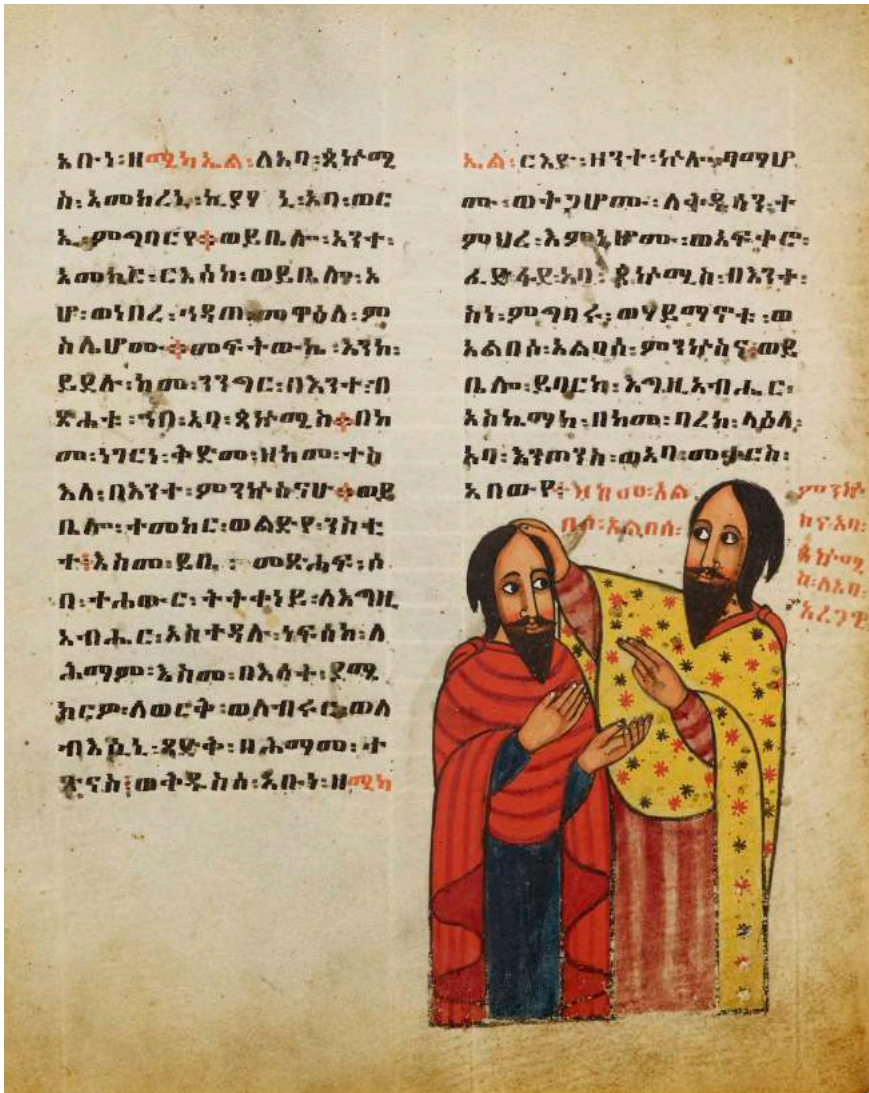 አቡነ፡ዘሚካኤል፡ለአባ፡ጳኵሚ
ስ፡አመከረኒ፡ኪያሃ ኒ፡አባ፡ወር
ኢ፡ምግባርየ፨ወይቤሎ፡አንተ፡
አመኪር፡ርእሰከ፡ወይቤሎ፡እ
ሆ፡ወነበረ፡ኀዳጠ፡መዋዕለ፡ም
ስሌሆሙ፨መፍትው ኬ፡እንከ፡
ይደሉ፡ከመ፡ንንግር፡በእንተ፡ብ
ጽሐቱ፡ኀበ፡አባ፡ጳኵሚስ፨በከ
መ፡ነገርነ፡ቅድመ፡ዘከመ፡ተስ
እለ፡በእንተ፡ምንኵስናሁ፨ወይ
ቤሎ፡ተመከር፡ወልድየ፡ንስቲ
ተ፤እስመ፡ይቤ፡ መጽሐፍ፡ሶ
በ፡ተሐውር፡ትትቀነይ፡ለእግዚ
አብሔር፡አስተዳሉ፡ነፍሰከ፡ለ
ሕማም፡እስመ፡በእሳት፡ያሜ
ክርዎ፡ለወርቅ፡ወለብሩር፡ወለ
ብእሲኒ፡ጻድቅ፡በሕማሙ፡ት
ጽናስ፤ወቅዱስሰ፡አቡነ፡ዘሚካ
ኤል፡ርእዮ፡ዘንተ፡ኵሎ፡ጻማሆ
ሙ፡ወትጋሆሙ፡ለቅዱሳን፡ተ
ምህረ፡እምኔሆሙ፡ወአፍቀሮ፡
ፈድፋደ፡አባ፡ጳኵሚስ፡በእንተ፡
ስነ፡ምግባሩ፡ወሃይማኖቱ፡ወ
አልበሶ፡አልባሰ፡ምንኵስና፡ወይ
ቤሎ፡ይባርክ፡እግዚአብሔር፡
አስኬማከ፡በከመ፡ባረከ፡ላዕለ፡
አባ፡እንጦንስ፡ወአባ፡መቃርስ፡
አበውየ፡ዘከመ፡አል
በሶ፡አልበሰ፡
ምንኵ
ስና፡አባ፡
ጳኵሚ
ስ፡ለአባ፡
አረጋዊ